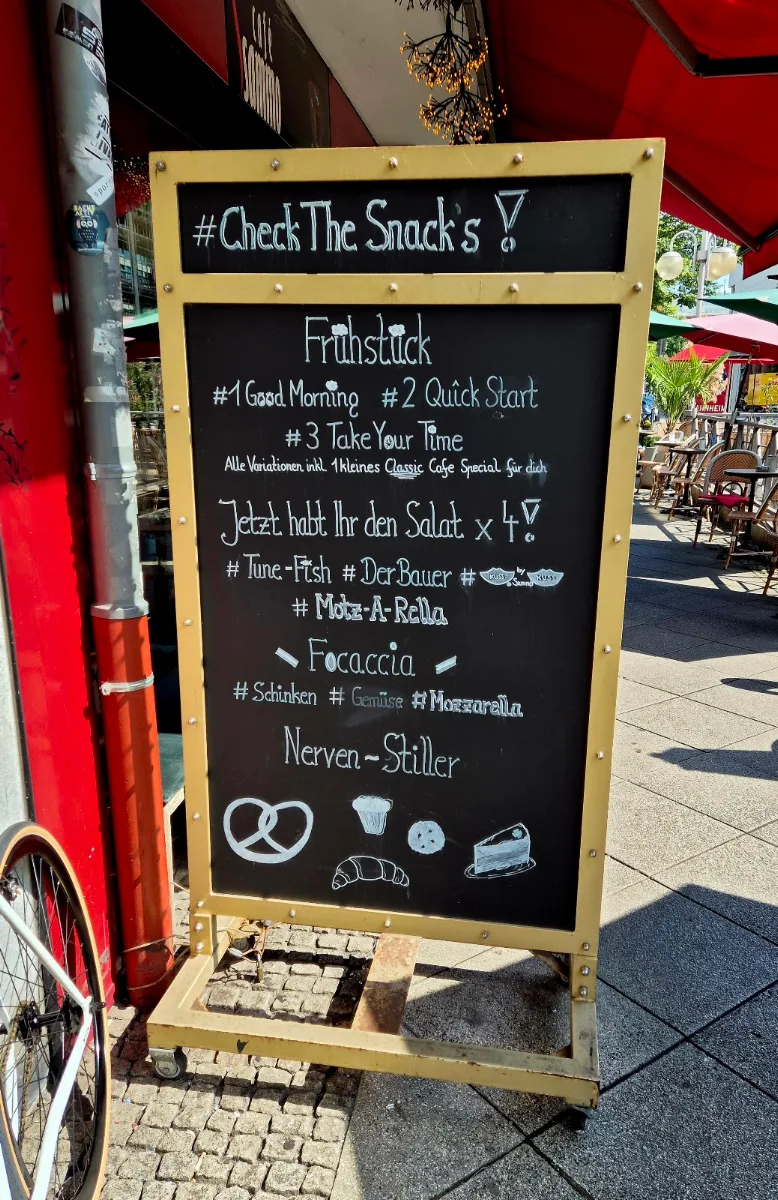 café
sommo
#CheckTheSnack's !
Frühstück
#1 Good Morning #2 Quick Start
#3 Take Your Time
Alle Variationen inkl. 1 kleines Classic Cafe Special für dich
Jetzt habt Ihr den Salat x 4!
#Tune-Fish #Der Bauer # KUSS by Sanmo KUSS
# Motz-A-Rella
Focaccia
#Schinken # Gemüse #Mozzarella
Nerven~Stiller